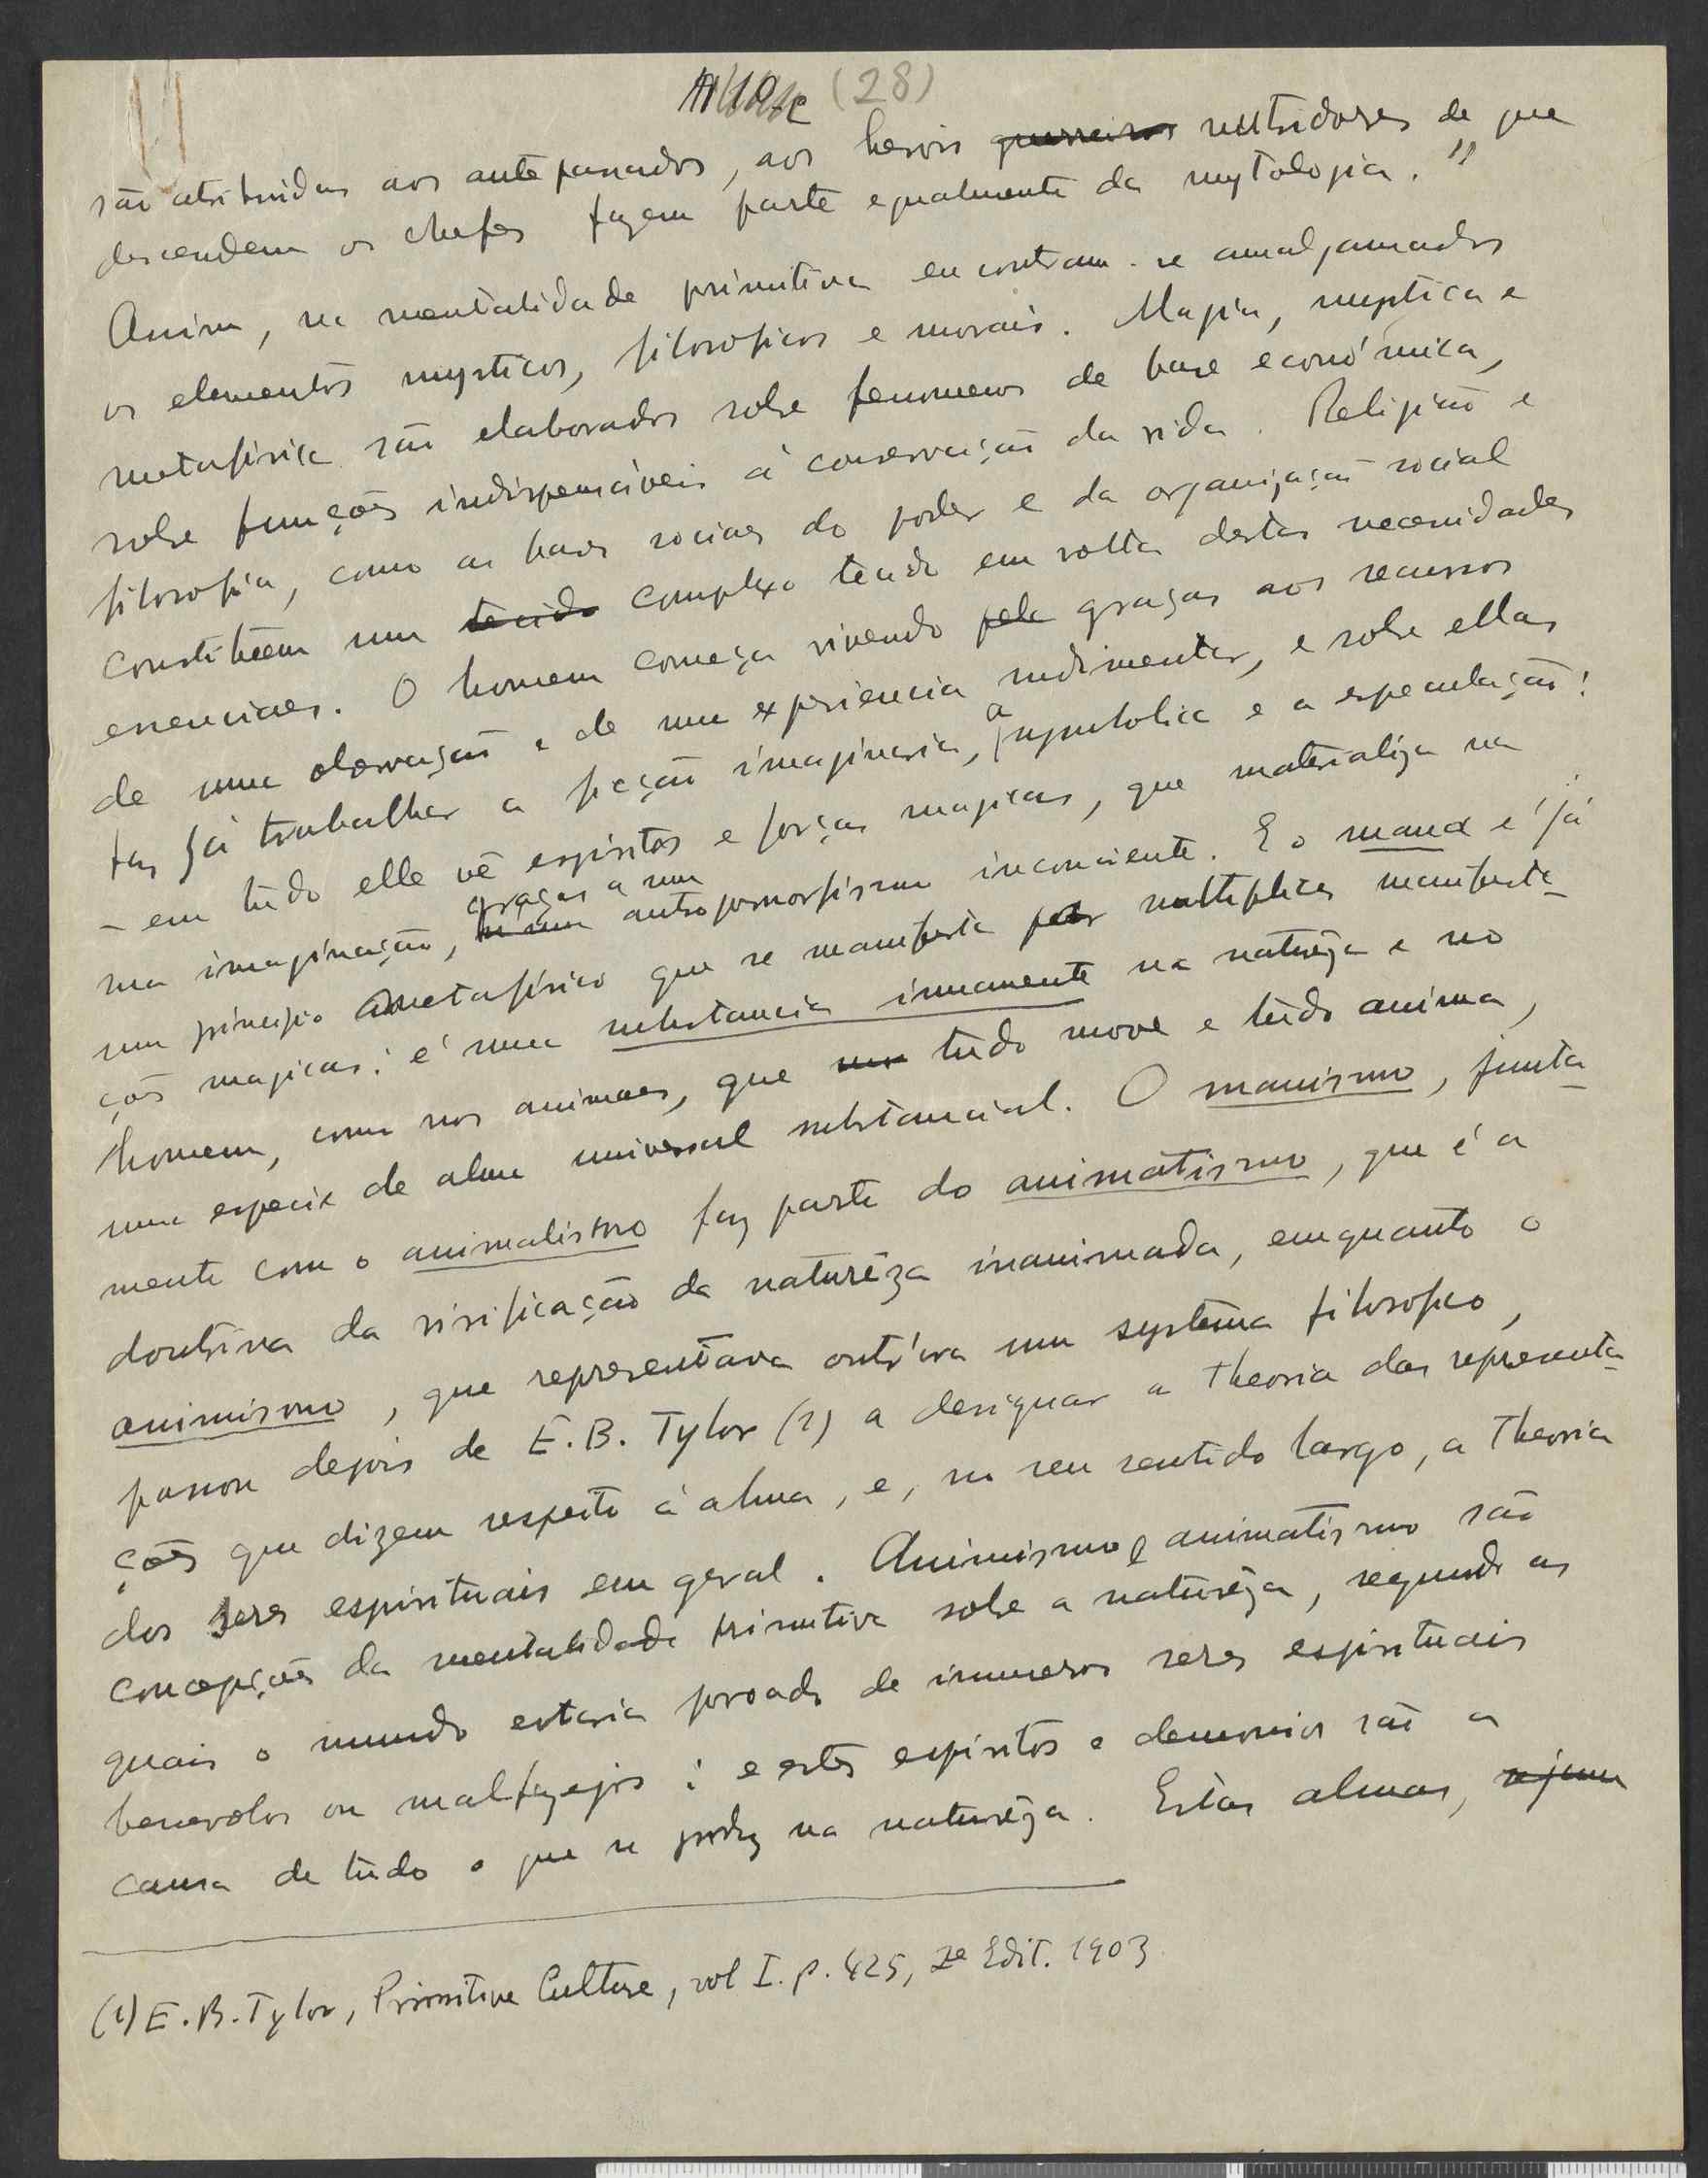 (28)
são atribuidas aos antepassados, aos herois guerreiros nutridores de que
descendem os chefes fazem parte egualmente da mytologia."
Assim, na mentalidade primitiva encontram-se amalgamados
os elementos mysticos, filosoficos e morais. Magia, mystica e
metafisica são elaborados sobre fenomenos de base económica,
sobre funções indispensáveis á conservação da vida. Religião e
filosofia, como as bases sociaes do poder e da organização social
constituem um tecido complexo tecido em volta destas necessidades
essenciaes. O homem começa vivendo pela graças aos recursos
de uma observação e de uma experiencia rudimentar, e sobre ellas
faz já trabalhar a ficção imaginaria, a symbolica e a especulação:
– em tudo elle vê espiritos e forças magicas, que materializa na
sua imaginação, graças a um antropomorfismo inconsciente. E o mana é já
um principio metafisico que se manifesta por multiplices manifesta-
ções magicas: é uma substancia immanente na naturêza e no
homem, como nos animaes, que tudo move e tudo anima,
uma especie de alma universal substancial. O manismo, junta-
mente com o animalismo faz parte do animatismo, que é a
doutrina da vivificação da naturêza inanimada, emquanto o
animismo, que representava outr'ora um systema filosofico,
passou depois de E.B. Tylor (1) a designar a theoria das representa-
ções que dizem respeito á alma, e, no seu sentido largo, a theoria
dos seres espirituais em geral. Animismo e animatismo são
concepções da mentalidade primitiva sobre a naturêza, segundo as
quais o mundo estaria povoado de inumeros seres espirituais
benevolos ou malfazejos: e estes espiritos e demonios são a
causa de tudo o que se produz na naturêza. Estas almas,
(1) E.B. Tylor, Primitive Culture, vol I. p. 425, Edit. 1903